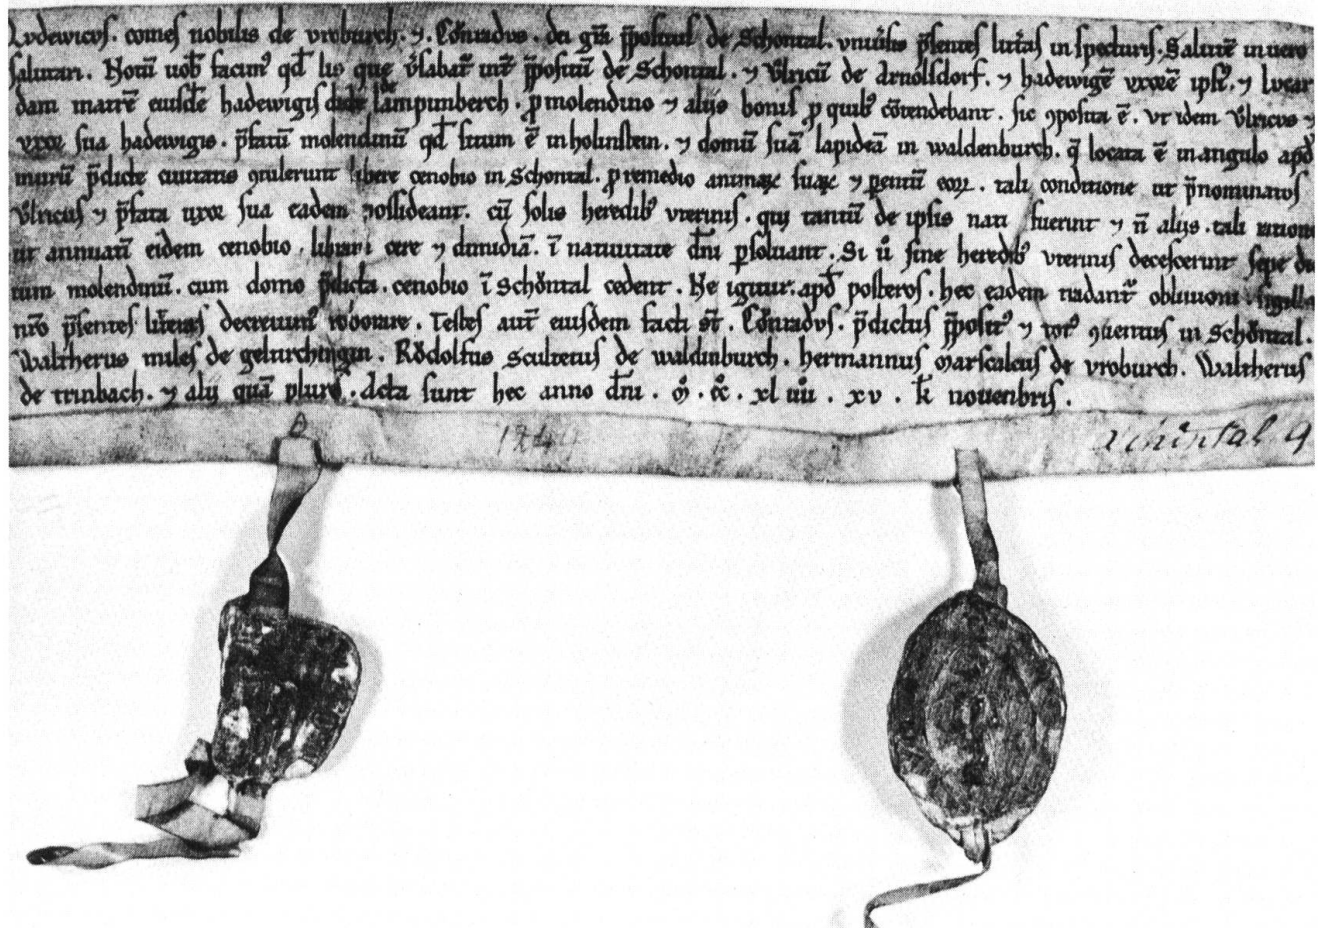 Lvdewicvs. comes nobilis de vroburch. ⁊. Cǒnradvs. dei gr̄a p̄positus de Schontal. vniu̾sis p̄sentes litt̾as inspecturis. Salutē in uero
salutari. Notū uob̄ facim᷒ qd̄ lis que u̾sabat᷑ int̄ p̄positū de Schontal. ⁊ Vͦlricū de Arnolsdorf. ⁊ hadewigē vxorē ipsi᷒. ⁊ lvcar
dam matrē eiusdē hadewigis de lampinberch. ꝓ molendino ⁊ alijs bonis ꝓ quib᷒ cōtendebant. sic ꝯposita ē. vt idem Vͦlricvs ⁊
vxor sua hadewigis. p̄fatū molendinū qd̄ situm ē in holinstein. ⁊ domū suā lapideā in waldenburch. q̄ locata ē in angulo apd̄
murū p̄dicte ciuitatis ꝯtulerunt libere cenobio in Schontal. ꝓ remedio animaꝝ suaꝝ ⁊ parentū eoꝝ. tali conditione ut p̄nominatvs
Vͦlricus ⁊ p̄fata uxor sua eadem possideant. cū solis heredib᷒ vterinis. qui tantū de ipsis nati fuerint ⁊ n̄ alijs. tali
ut annuatī eidem cenobio. libram cere ⁊ dimidiā. ī natiuitate dn̄i ꝑsoluant. Si u̾o sine heredib᷒ vterinis decesserint sepe dic
tum molendinū. cum domo p̄dicta. cenobio ī Schǒntal cedent. Ne igitur. apd̄ posteros. hec eadem tradant᷑ obliuioni sigillo
nr̄o p̄sentes litteras decreuim᷒ roborare. Testes aut̄ eiusdem facti st̄. Cǒnradvs. p̄dictus p̄posit᷒ ⁊ tot᷒ ꝯuentus in Schǒntal.
Waltherus miles de gelturchingin. Rǒdolfus scultetus de waldinburch. hermannus Marscalcus de vroburch. Waltherus
de trinbach. ⁊ alij quā plures. Acta sunt hec anno dn̄i. M̊. c̊c. xl iiii. xv. k̄l novenbris.
124
schöntal 9